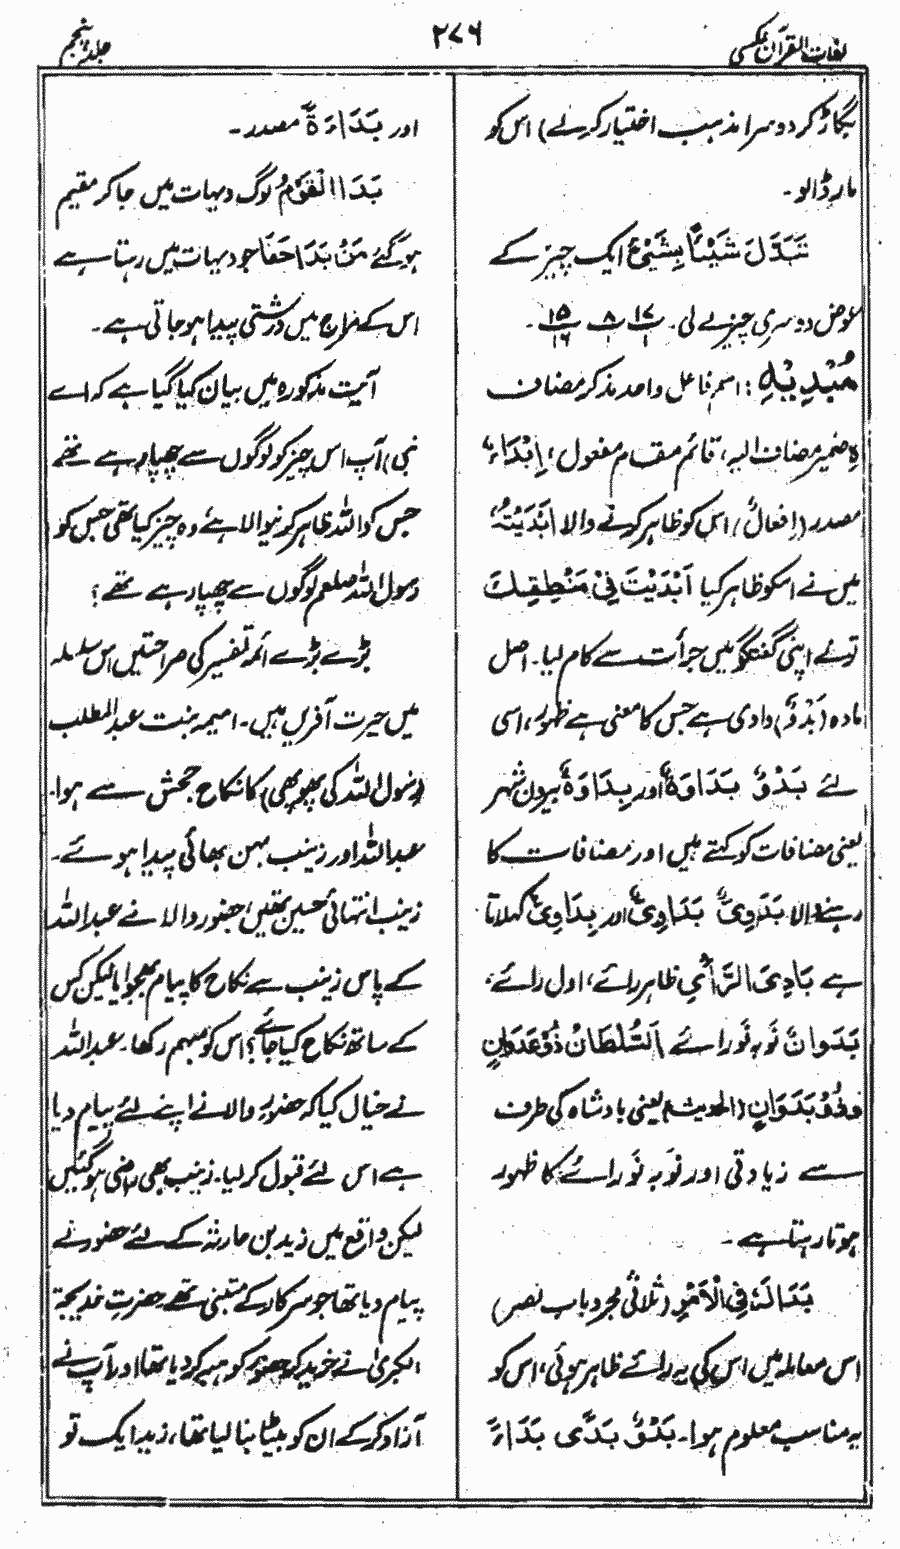 لغات القرآن عکسی
۲۷۶
جلد پنجم
بگاڑ کر دوسرا مذہب اختیار کر لے) اس کو
مار ڈالو۔
تَبَدَّلَ شَیْئًا بِشَیْءٍ ایک چیز کے
عوض دوسری چیز لے لی۔
مُبْدِیْہِ : اسم فاعل واحد مذکر مضاف
ہِ ضمیر مضاف الیہ، قائم مقام مفعول، اِبْدَاءٌ
مصدر (اِفعال) اس کو ظاہر کرنے والا اَبْدَیْتُہٗ
میں نے اسکو ظاہر کیا اَبْدَیْتَ فِیْ مَنْطِقِکَ
تونے اپنی گفتگو میں جرأت سے کام لیا۔ اصل
مادہ (بَدْوٌ) وادی ہے جس کا معنی ہے ظہور، اسی
لئے بَدْوٌ بَدَاوَۃٌ اور بِدَاوَۃٌ بیرون شہر
یعنی مضافات کو کہتے ہیں اور مضافات کا
رہنے والا بَدَوِیٌّ بَدَاوِیٌّ اور بِدَاوِیٌّ کہلاتا
ہے بَادِیَ الرَّأْیِ ظاہر رائے، اول رائے،
بَدَوانٌ نَو بہ نَو رائے اَلسُّلْطَانُ ذُوْعَدَوَانٍ
وَذُوْ بَدَوَانٍ (الحدیث) یعنی بادشاہ کی طرف
سے زیادتی اور نَو بہ نَو رائے کا ظہور
ہوتا رہتا ہے۔
بَدَا لَہٗ فِی الْاَمْرِ (ثلاثی مجرد باب نصر)
اس معاملہ میں اس کی یہ رائے ظاہر ہوئی، اس کو
یہ مناسب معلوم ہوا۔ بَدْوٌ بَدًی بَدَاءً
اور بَدَاءَۃٌ مصدر۔
بَدَا الْقَوْمُ لوگ دیہات میں جا کر مقیم
ہو گئے مَنْ بَدَا جَفَا جو دیہات میں رہتا ہے
اس کے مزاج میں درشتی پیدا ہو جاتی ہے۔
آیت مذکورہ میں بیان کیا گیا ہے کہ اے
نبی! آپ اس چیز کو لوگوں سے چھپا رہے تھے
جس کو اللہ ظاہر کرنیوالا ہے وہ چیز کیا تھی جس کو
رسول اللہ صلعم لوگوں سے چھپا رہے تھے؟
بڑے بڑے ائمہ تفسیر کی صراحتیں اس سلسلہ
میں حیرت آفریں ہیں۔ امیمہ بنت عبدالمطلب
(رسول اللہ کی پھوپھی) کا نکاح جحش سے ہوا۔
عبداللہ اور زینب بہن بھائی پیدا ہوئے۔
زینب انتہائی حسین تھیں، حضور والا نے عبداللہ
کے پاس زینب سے نکاح کا پیام بھجوایا لیکن کس
کے ساتھ نکاح کیا جائے؟ اس کو مبہم رکھا۔ عبداللہ
نے خیال کیا کہ حضور والا نے اپنے لئے پیام دیا
ہے اس لئے قبول کر لیا۔ زینب بھی راضی ہو گئیں
لیکن واقع میں زید بن حارثہ کے لئے حضور نے
پیام دیا تھا جو سرکار کے متبنی تھے حضرت خدیجۃ
الکبریٰ نے خرید کر حضور کو ہبہ کر دیا تھا اور آپ نے
آزاد کر کے ان کو بیٹا بنا لیا تھا، زید ایک تو